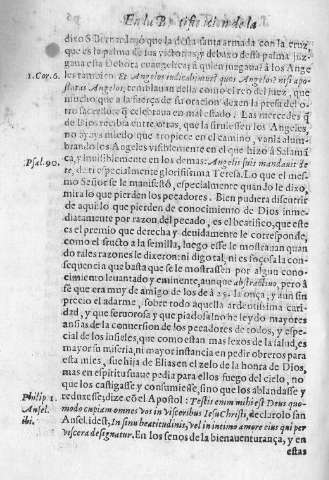 En la Beatificacion de la
dixo S. Bernardo, que la desta santa armada con la cruz,
que es la palma de sus victorias, y debaxo desta palma juz
gaua esta Debora euangelica; a quien juzgaua? a los Ange
1. Cor. 6.
les tambien. Et Angelos iudicabimus? quos Angelos? nisi apo-
statas Angelos,
mucho, que a la fuerça de su oracion dexen la presa
tro sacrilego celebraua en mal estado. Las mercedes q̃
de Dios recibia entre otras, que la siruiessen los Angeles,
no aya miedo que tropiece en el camino, vanla alum-
brando los Angeles visiblemente en el que hizo a Salamã
Psal. 90.
ca, y inuisiblemente en los demas: Angelis suis mandauit de
te, de ti especialmente gloriosissima Teresa. Lo que el mes-
mo Señor se le manifestô, especialmente quando le dixo,
mira lo que pierden los pecadores. Bien pudiera discurrir
de aqui lo que pierden de conocimiento de Dios inme-
diatamente por razon del pecado, es el beatifico, que este
es el premio que derecha y deuidamente le corresponde,
como el fructo a la semilla, luego esse le mostrauan quan
do tales razones le dixeron: ni digo tal, ni es forçosa la con-
sequencia que basta que se le mostrassen por algun cono-
cimiento leuantado y eminente, aunque abstractiuo, pero a
fè que era muy de amigo de los de a 25. la onça, y aun sin
precio el adarme, sobre todo aquella ardentissima cari-
dad, y que feruorosa y que piadosa! no he leydo mayores
ansias de la conuersion de los pecadores de todos, y espe-
cial de los infieles, que como estan mas lexos de la salud, es
mayor su miseria, ni mayor instancia en pedir obreros para
esta mies, fue hija de Elias en el zelo de la honra de Dios,
mas en espiritu suaue pedia para ellos fuego del cielo, no
que los castigasse y consumiesse, sino que los ablandasse y
Philip. 1.
reduxesse, dize cõ el Apostol: Testis enim mihi est Deus quo-
Ansel.
modo cupiam omnes vos in visceribus Iesu Christi, declarolo san
ibi.
Ansel. idest, In sinu beatitudinis, vel in intimo amore eius qui per
viscera designatur. En los senos de la bienauenturança, y en
estas